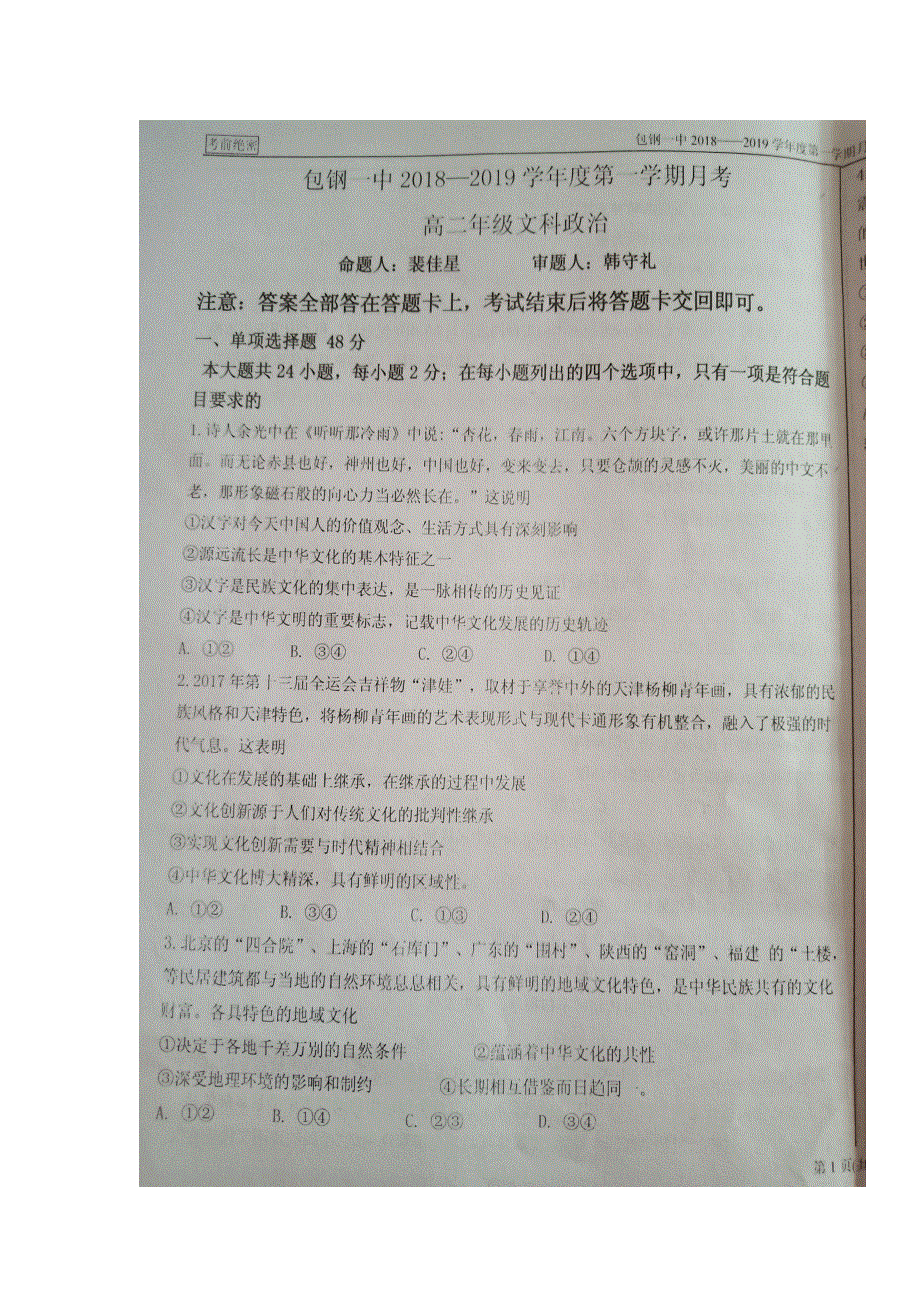 考前绝密
包钢一中 2018——2019 学年度第一学期月
包钢一中 2018—2019 学年度第一学期月考
高二年级文科政治
命题人：裴佳星 审题人：韩守礼
注意：答案全部答在答题卡上，考试结束后将答题卡交回即可。
一、单项选择题 48 分
本大题共 24 小题，每小题 2 分；在每小题列出的四个选项中，只有一项是符合题
目要求的
1.诗人余光中在《听听那冷雨》中说：“杏花，春雨，江南。六个方块字，或许那片土就在那里
面。而无论赤县也好，神州也好，中国也好，变来变去，只要仓颉的灵感不灭，美丽的中文不
老，那形象磁石般的向心力当必然长在。”这说明
①汉字对今天中国人的价值观念、生活方式具有深刻影响
②源远流长是中华文化的基本特征之一
③汉字是民族文化的集中表达，是一脉相传的历史见证
④汉字是中华文明的重要标志，记载中华文化发展的历史轨迹
A. ①② B. ③④ C. ②④ D. ①④
2.2017 年第十三届全运会吉祥物“津娃”，取材于享誉中外的天津杨柳青年画，具有浓郁的民
族风格和天津特色，将杨柳青年画的艺术表现形式与现代卡通形象有机整合，融入了极强的时
代气息。这表明
①文化在发展的基础上继承，在继承的过程中发展
②文化创新源于人们对传统文化的批判性继承
③实现文化创新需要与时代精神相结合
④中华文化博大精深，具有鲜明的区域性。
A. ①② B. ③④ C. ①③ D. ②④
3.北京的“四合院”、上海的“石库门”、广东的“围村”、陕西的“窑洞”、福建 的“土楼，
等民居建筑都与当地的自然环境息息相关，具有鲜明的地域文化特色，是中华民族共有的文化
财富。各具特色的地域文化
①决定于各地千差万别的自然条件 ②蕴涵着中华文化的共性
③深受地理环境的影响和制约 ④长期相互借鉴而日趋同 。
A. ①② B. ①④ C. ②③ D. ③④
第 1 页